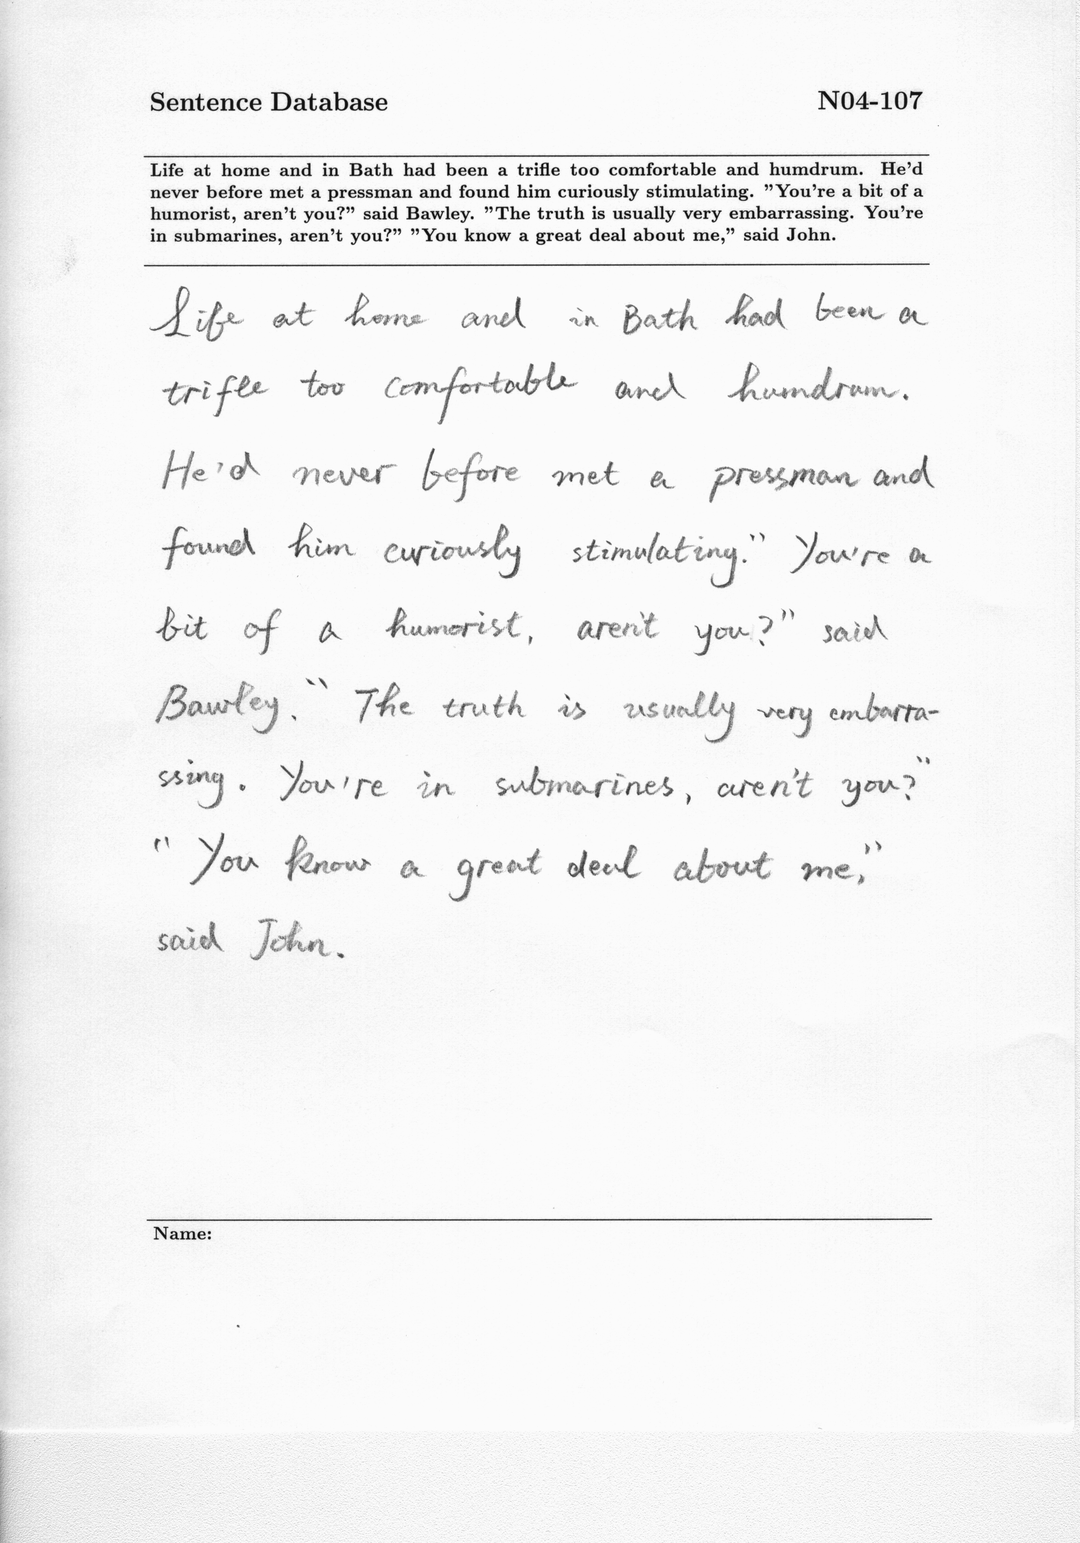 Sentence Database N04-107
Life at home and in Bath had been a trifle too comfortable and humdrum. He'd
never before met a pressman and found him curiously stimulating. "You're a bit of a
humorist, aren't you?" said Bawley. "The truth is usually very embarrassing. You're
in submarines, aren't you?" "You know a great deal about me," said John.
Life at home and in Bath had been a
trifle too comfortable and humdrum.
He'd never before met a pressman and
found him curiously stimulating." You're a
bit of a humorist, aren't you?" said
Bawley. " The truth is usually very embarra-
ssing. You're in submarines, aren't you?"
" You know a great deal about me,"
said John.
Name: